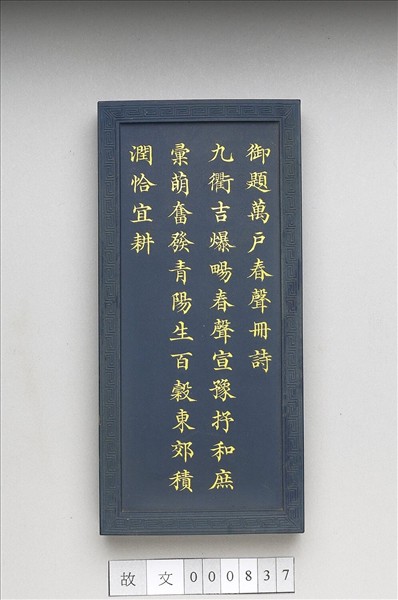 御題萬戶春聲冊詩
九衢吉爆暢春聲宣豫抒和庶
彙萌奮發青陽生百穀東郊積
潤恰宜耕
故文000837